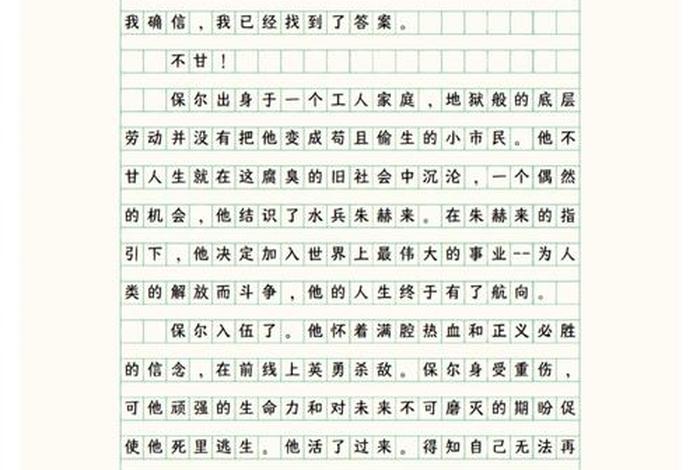 我确信，我已经找到了答案。
不甘！
保尔出身于一个工人家庭，地狱般的底层
劳动并没有把他变成苟且偷生的小市民。他不
甘人生就在这腐臭的旧社会中沉沦，一个偶然
的机会，他结识了水兵朱赫来。在朱赫来的指
引下，他决定加入世界上最伟大的事业--为人
类的解放而斗争，他的人生终于有了航向。
保尔入伍了。他怀着满腔热血和正义必胜
的信念，在前线上英勇杀敌。保尔身受重伤，
可他顽强的生命力和对未来不可磨灭的期盼促
使他死里逃生。他活了过来。得知自己无法再